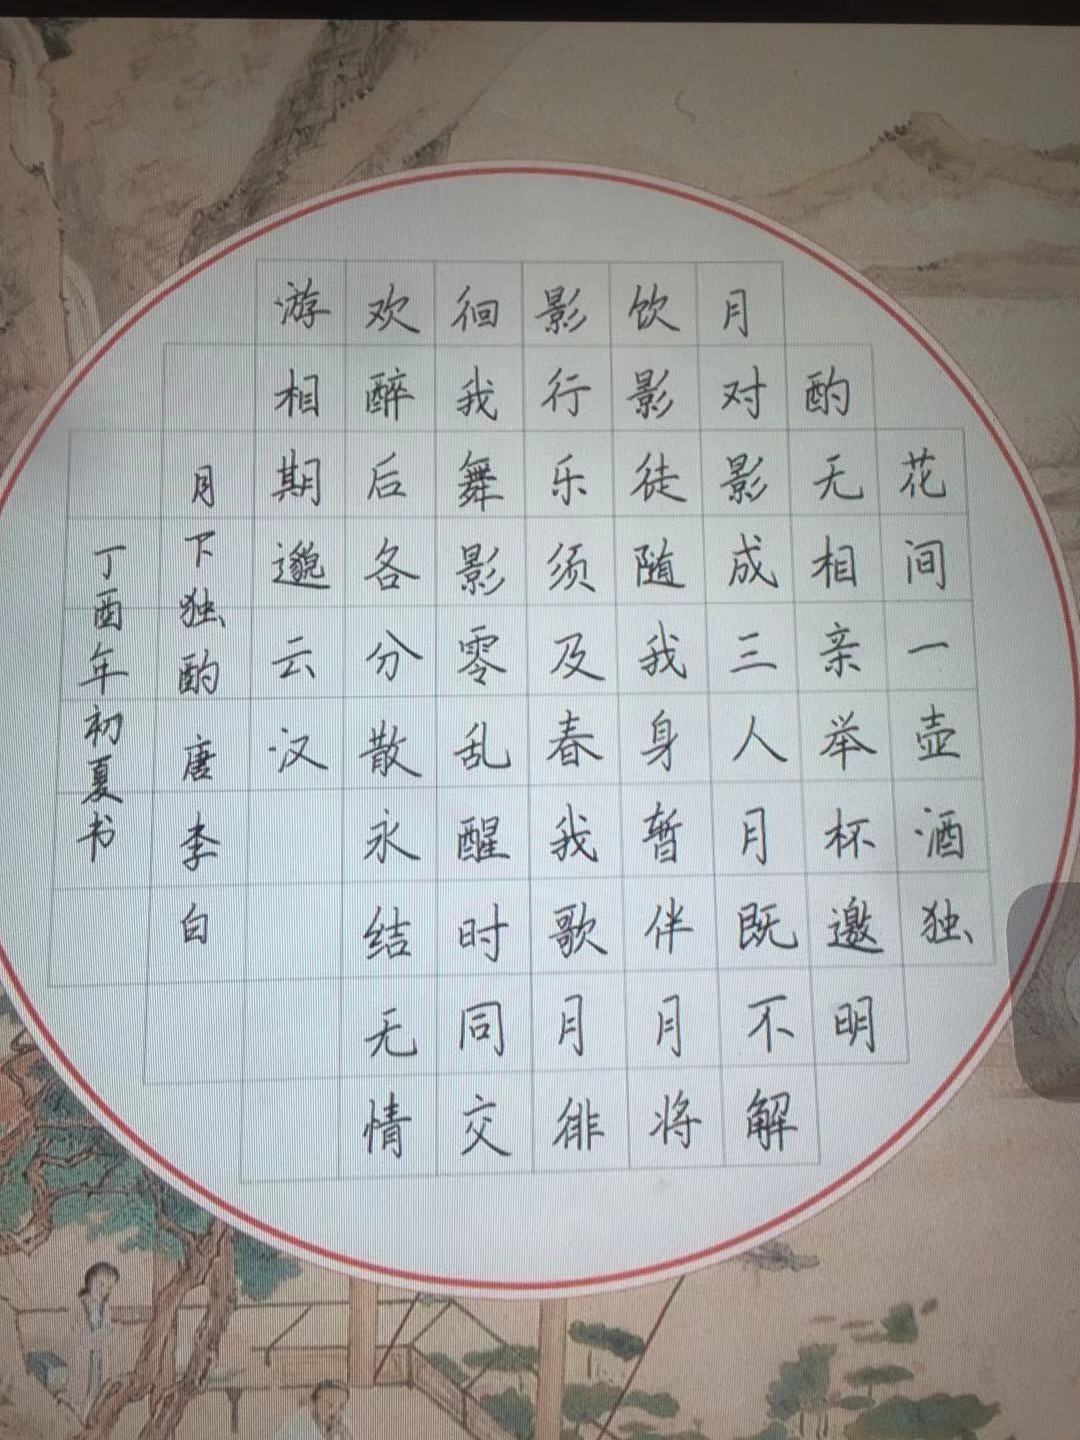 花间一壶酒独
酌无相亲举杯邀明
月对影成三人月既不解
饮影徒随我身暂伴月将
影行乐须及春我歌月徘
徊我舞影零乱醒时同交
欢醉后各分散永结无情
游相期邈云汉
月下独酌唐李白
丁酉年初夏书